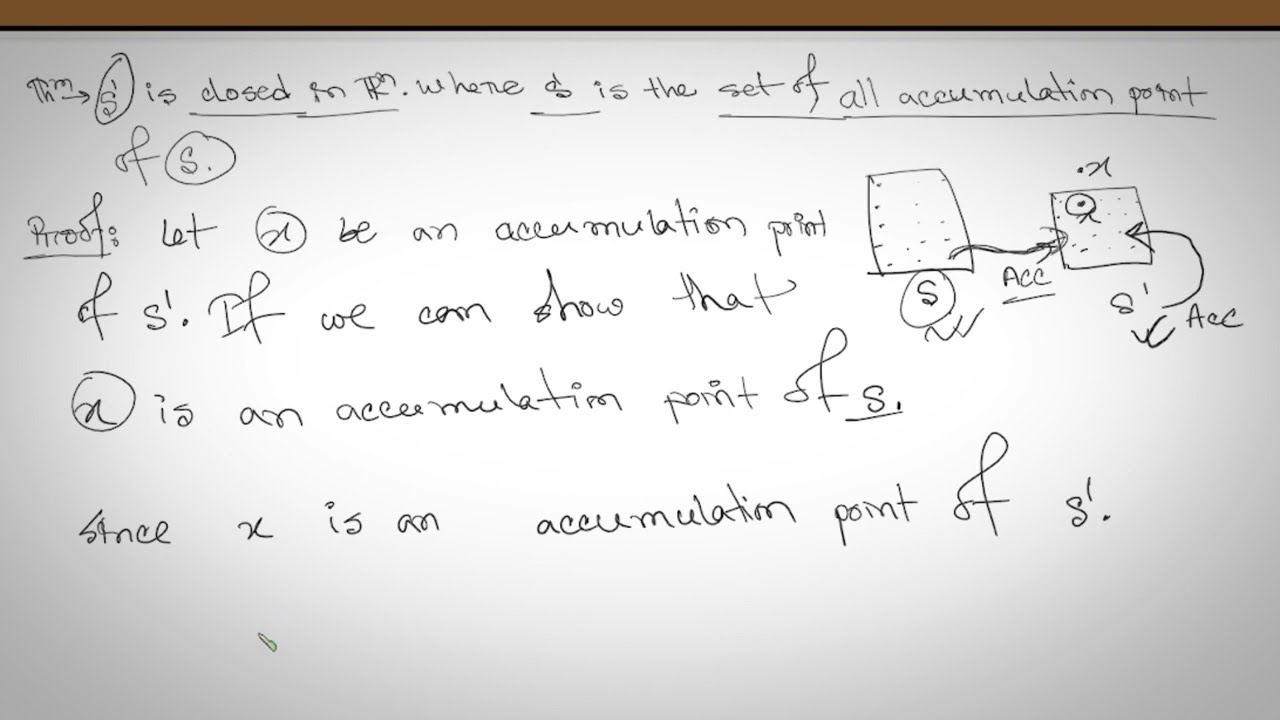 Thm → S' is closed in ℝⁿ. where S' is the set of all accumulation point
of S.
Proof: Let x be an accumulation point
of S'. If we can show that
x is an accumulation point of S.
Since x is an accumulation point of S'.
.x
x
S
Acc
S'
Acc